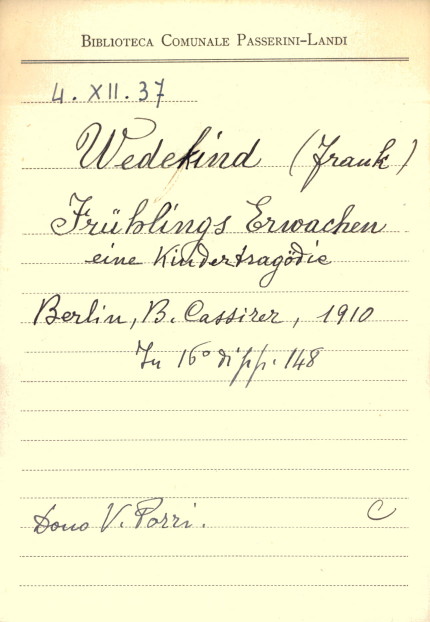 BIBLIOTECA COMUNALE PASSERINI-LANDI
4. XII. 37
Wedekind (Frank)
Frühlings Erwachen
eine Kindertragödie
Berlin, B. Cassirer, 1910
In 16° di pp. 148
Dono V. Porri. C